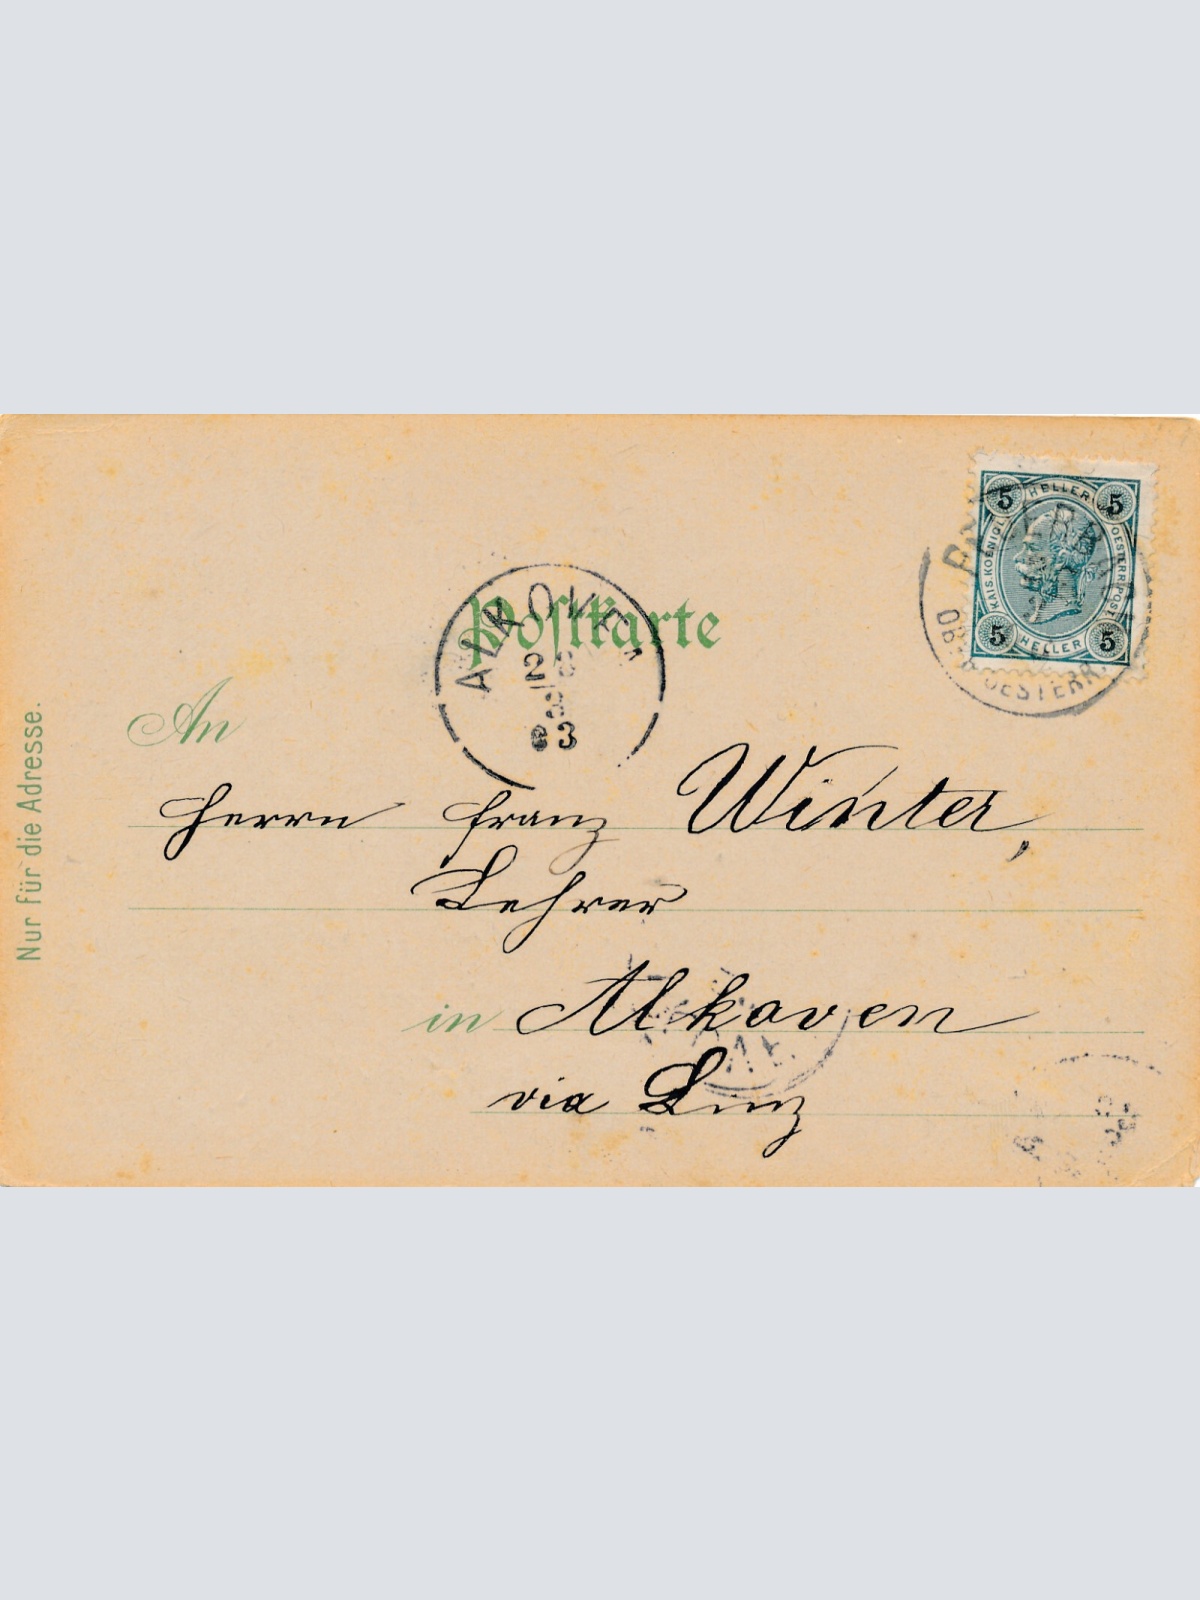 Postkarte
ALKOVEN
5 HELLER 5
KAIS. KOENIGL. OESTERR. POST.
5 HELLER 5
OBER-OESTERR.
An
Herrn Franz Winter,
Lehrer
in Alkoven
via Linz
Nur für die Adresse.